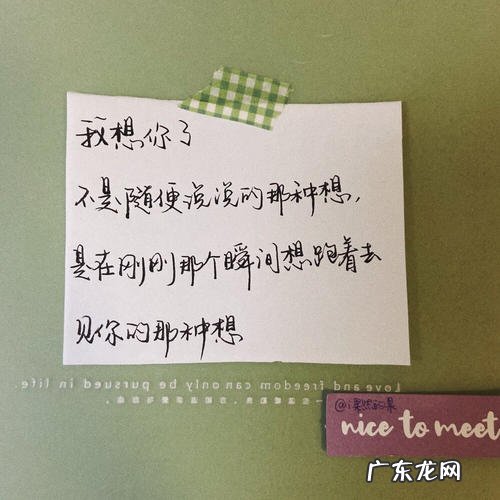 我想你了
不是随便说说的那种想，
是在刚刚那个瞬间想跑着去
见你的那种想
Love and freedom can only be pursued in life.
nice to meet
广东龙网